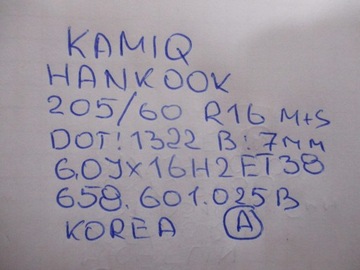 KAMIQ
HANKOOK
205/60 R16 M+S
DOT: 1322 B: 7mm
6.0Jx16H2ET38
658.601.025B
KOREA A